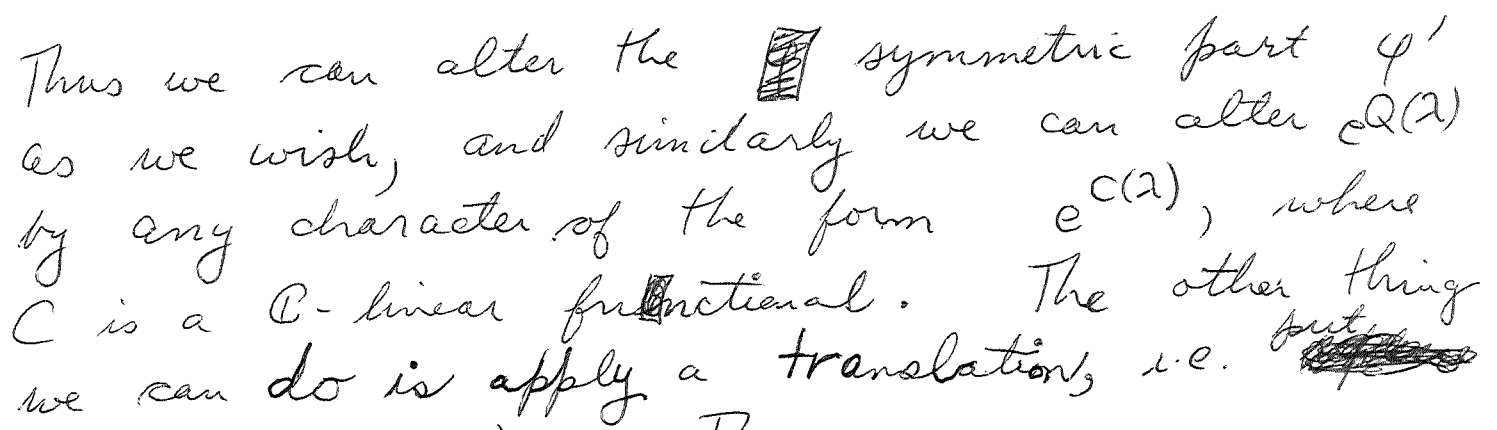 Thus we can alter the symmetric part φ'
as we wish, and similarly we can alter e^{Q(λ)}
by any character of the form e^{C(λ)}, where
C is a ℂ-linear functional. The other thing
we can do is apply a translation, i.e. put